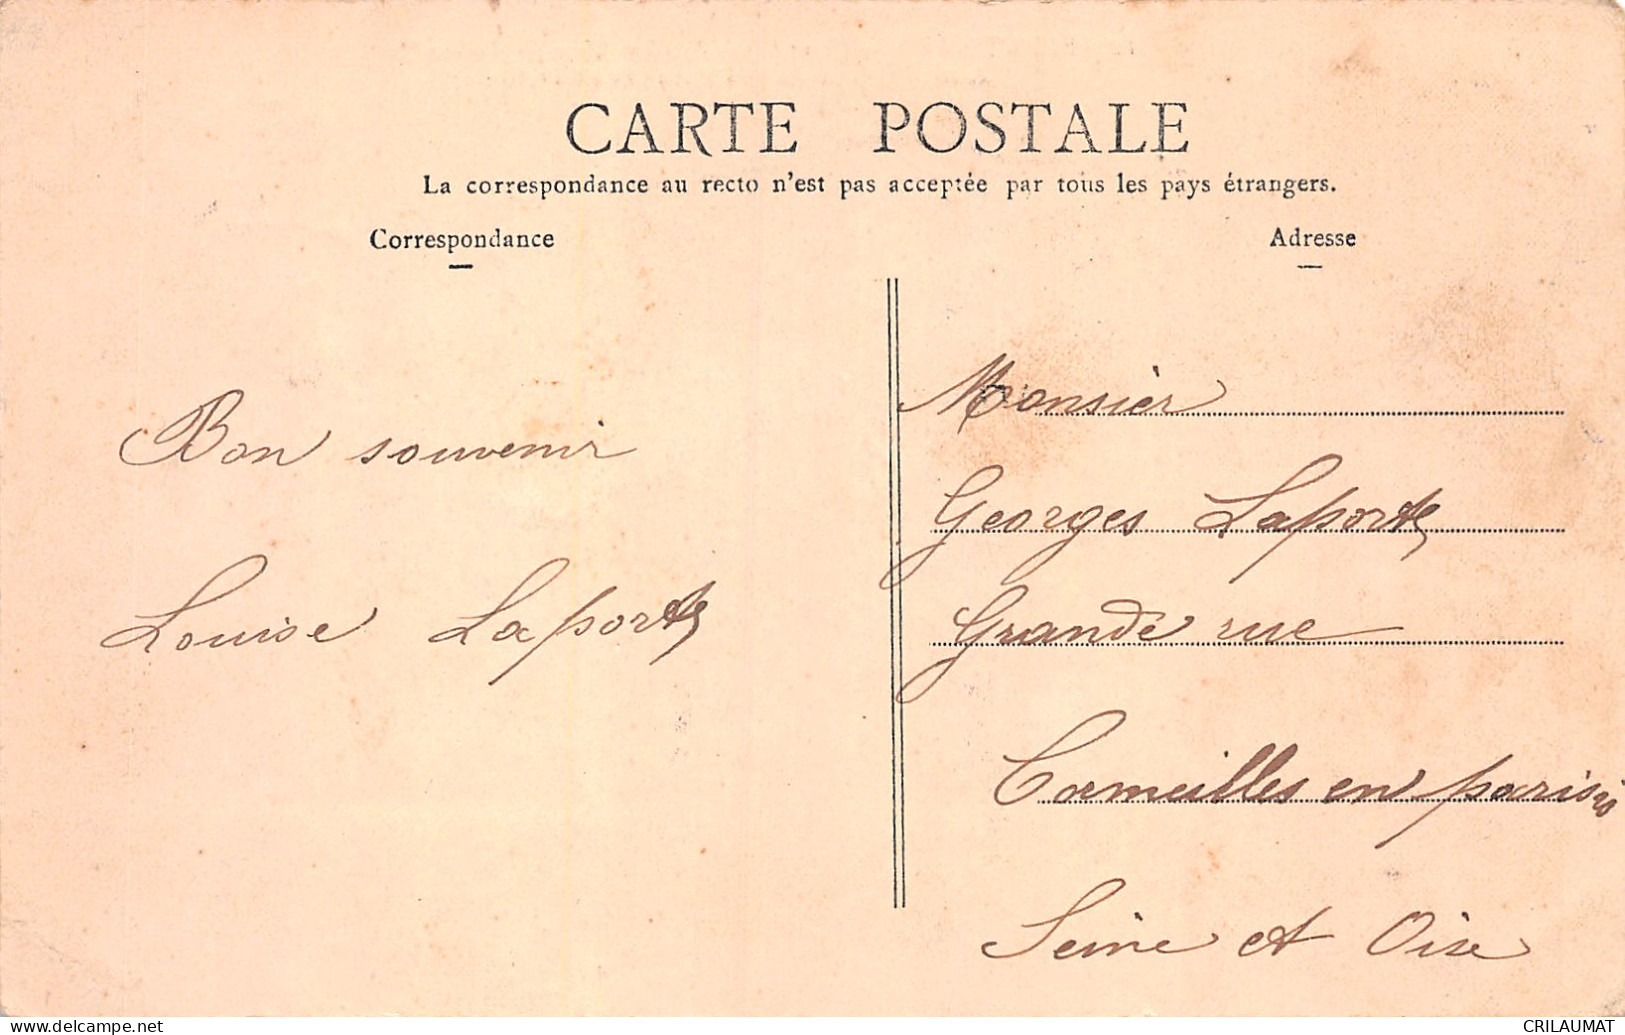 CARTE POSTALE
La correspondance au recto n'est pas acceptée par tous les pays étrangers.
Correspondance
Adresse
Bon souvenir
Louise Laporte
Monsier
Georges Laporte
Grande rue
Cormeilles en parisis
Seine et Oise
www.delcampe.net
CRILAUMAT